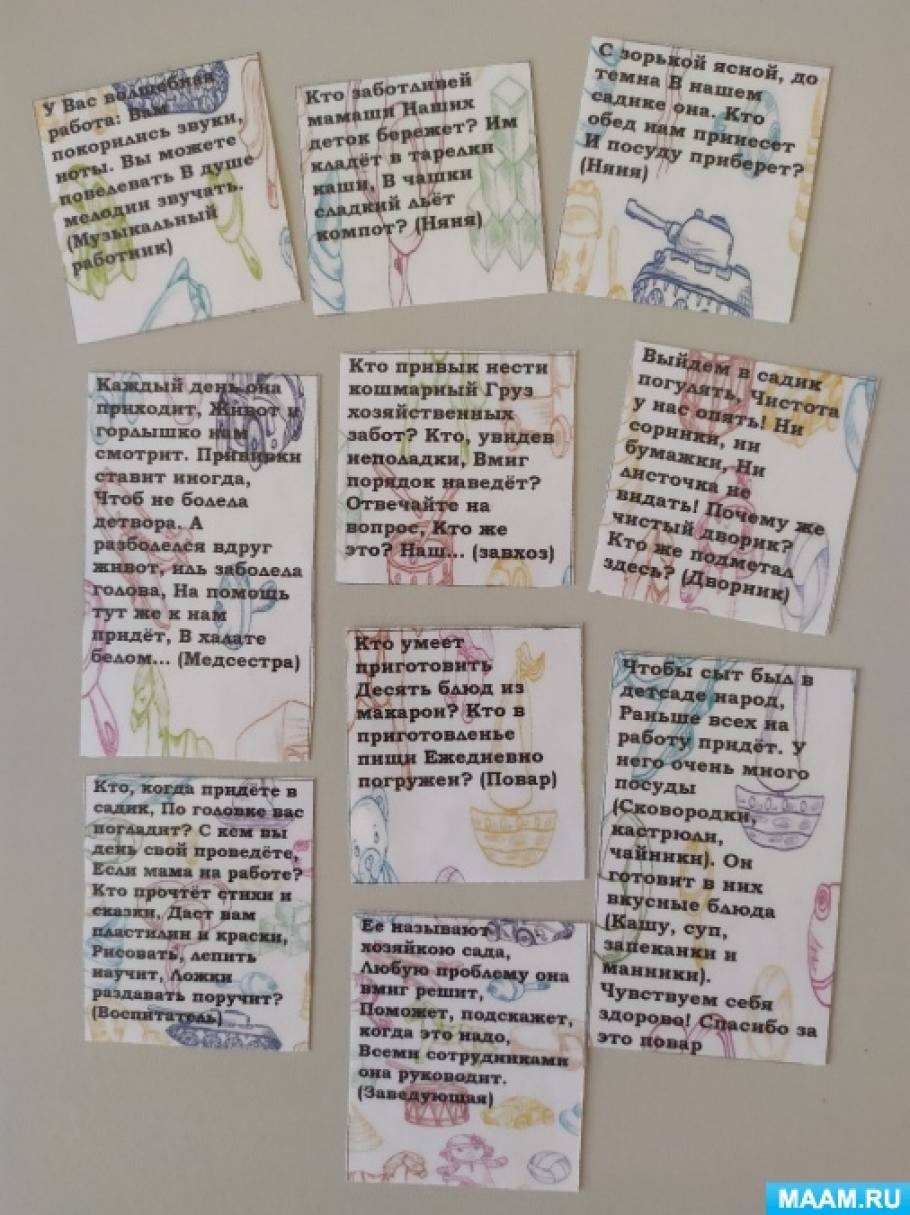 У Вас волшебная
работа: Вам
покорились звуки,
ноты. Вы можете
повелевать В душе
мелодии звучать.
(Музыкальный
работник)
Кто заботливей
мамаши Наших
деток бережет? Им
кладёт в тарелки
каши, В чашки
сладкий льёт
компот? (Няня)
С зорькой ясной, до
темна В нашем
садике она. Кто
обед нам принесет
И посуду приберет?
(Няня)
Каждый день она
приходит, Живот и
горлышко нам
смотрит. Прививки
ставит иногда,
Чтоб не болела
детвора. А
разболелся вдруг
живот, иль заболела
голова, На помощь
тут же к нам
придёт, В халате
белом... (Медсестра)
Кто привык нести
кошмарный Груз
хозяйственных
забот? Кто, увидев
неполадки, Вмиг
порядок наведёт?
Отвечайте на
вопрос, Кто же
это? Наш... (завхоз)
Выйдем в садик
погулять, Чистота
у нас опять! Ни
соринки, ни
бумажки, Ни
листочка не
видать! Почему же
чистый дворик?
Кто же подметал
здесь? (Дворник)
Кто умеет
приготовить
Десять блюд из
макарон? Кто в
приготовленье
пищи Ежедневно
погружен? (Повар)
Чтобы сыт был в
детсаде народ,
Раньше всех на
работу придёт. У
него очень много
посуды
(Сковородки,
кастрюли,
чайники). Он
готовит в них
вкусные блюда
(Кашу, суп,
запеканки и
манники).
Чувствуем себя
здорово! Спасибо за
это повар
Кто, когда придёте в
садик, По головке вас
погладит? С кем вы
день свой проведёте,
Если мама на работе?
Кто прочтёт стихи и
сказки, Даст вам
пластилин и краски,
Рисовать, лепить
научит, Ложки
раздавать поручит?
(Воспитатель)
Ее называют
хозяйкою сада,
Любую проблему она
вмиг решит,
Поможет, подскажет,
когда это надо,
Всеми сотрудниками
она руководит.
(Заведующая)
MAAM.RU